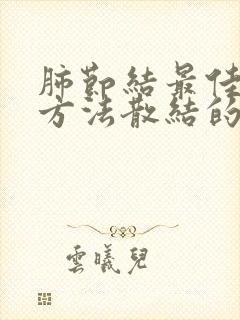 肺節結最佳
方法散結的
雲曦兒